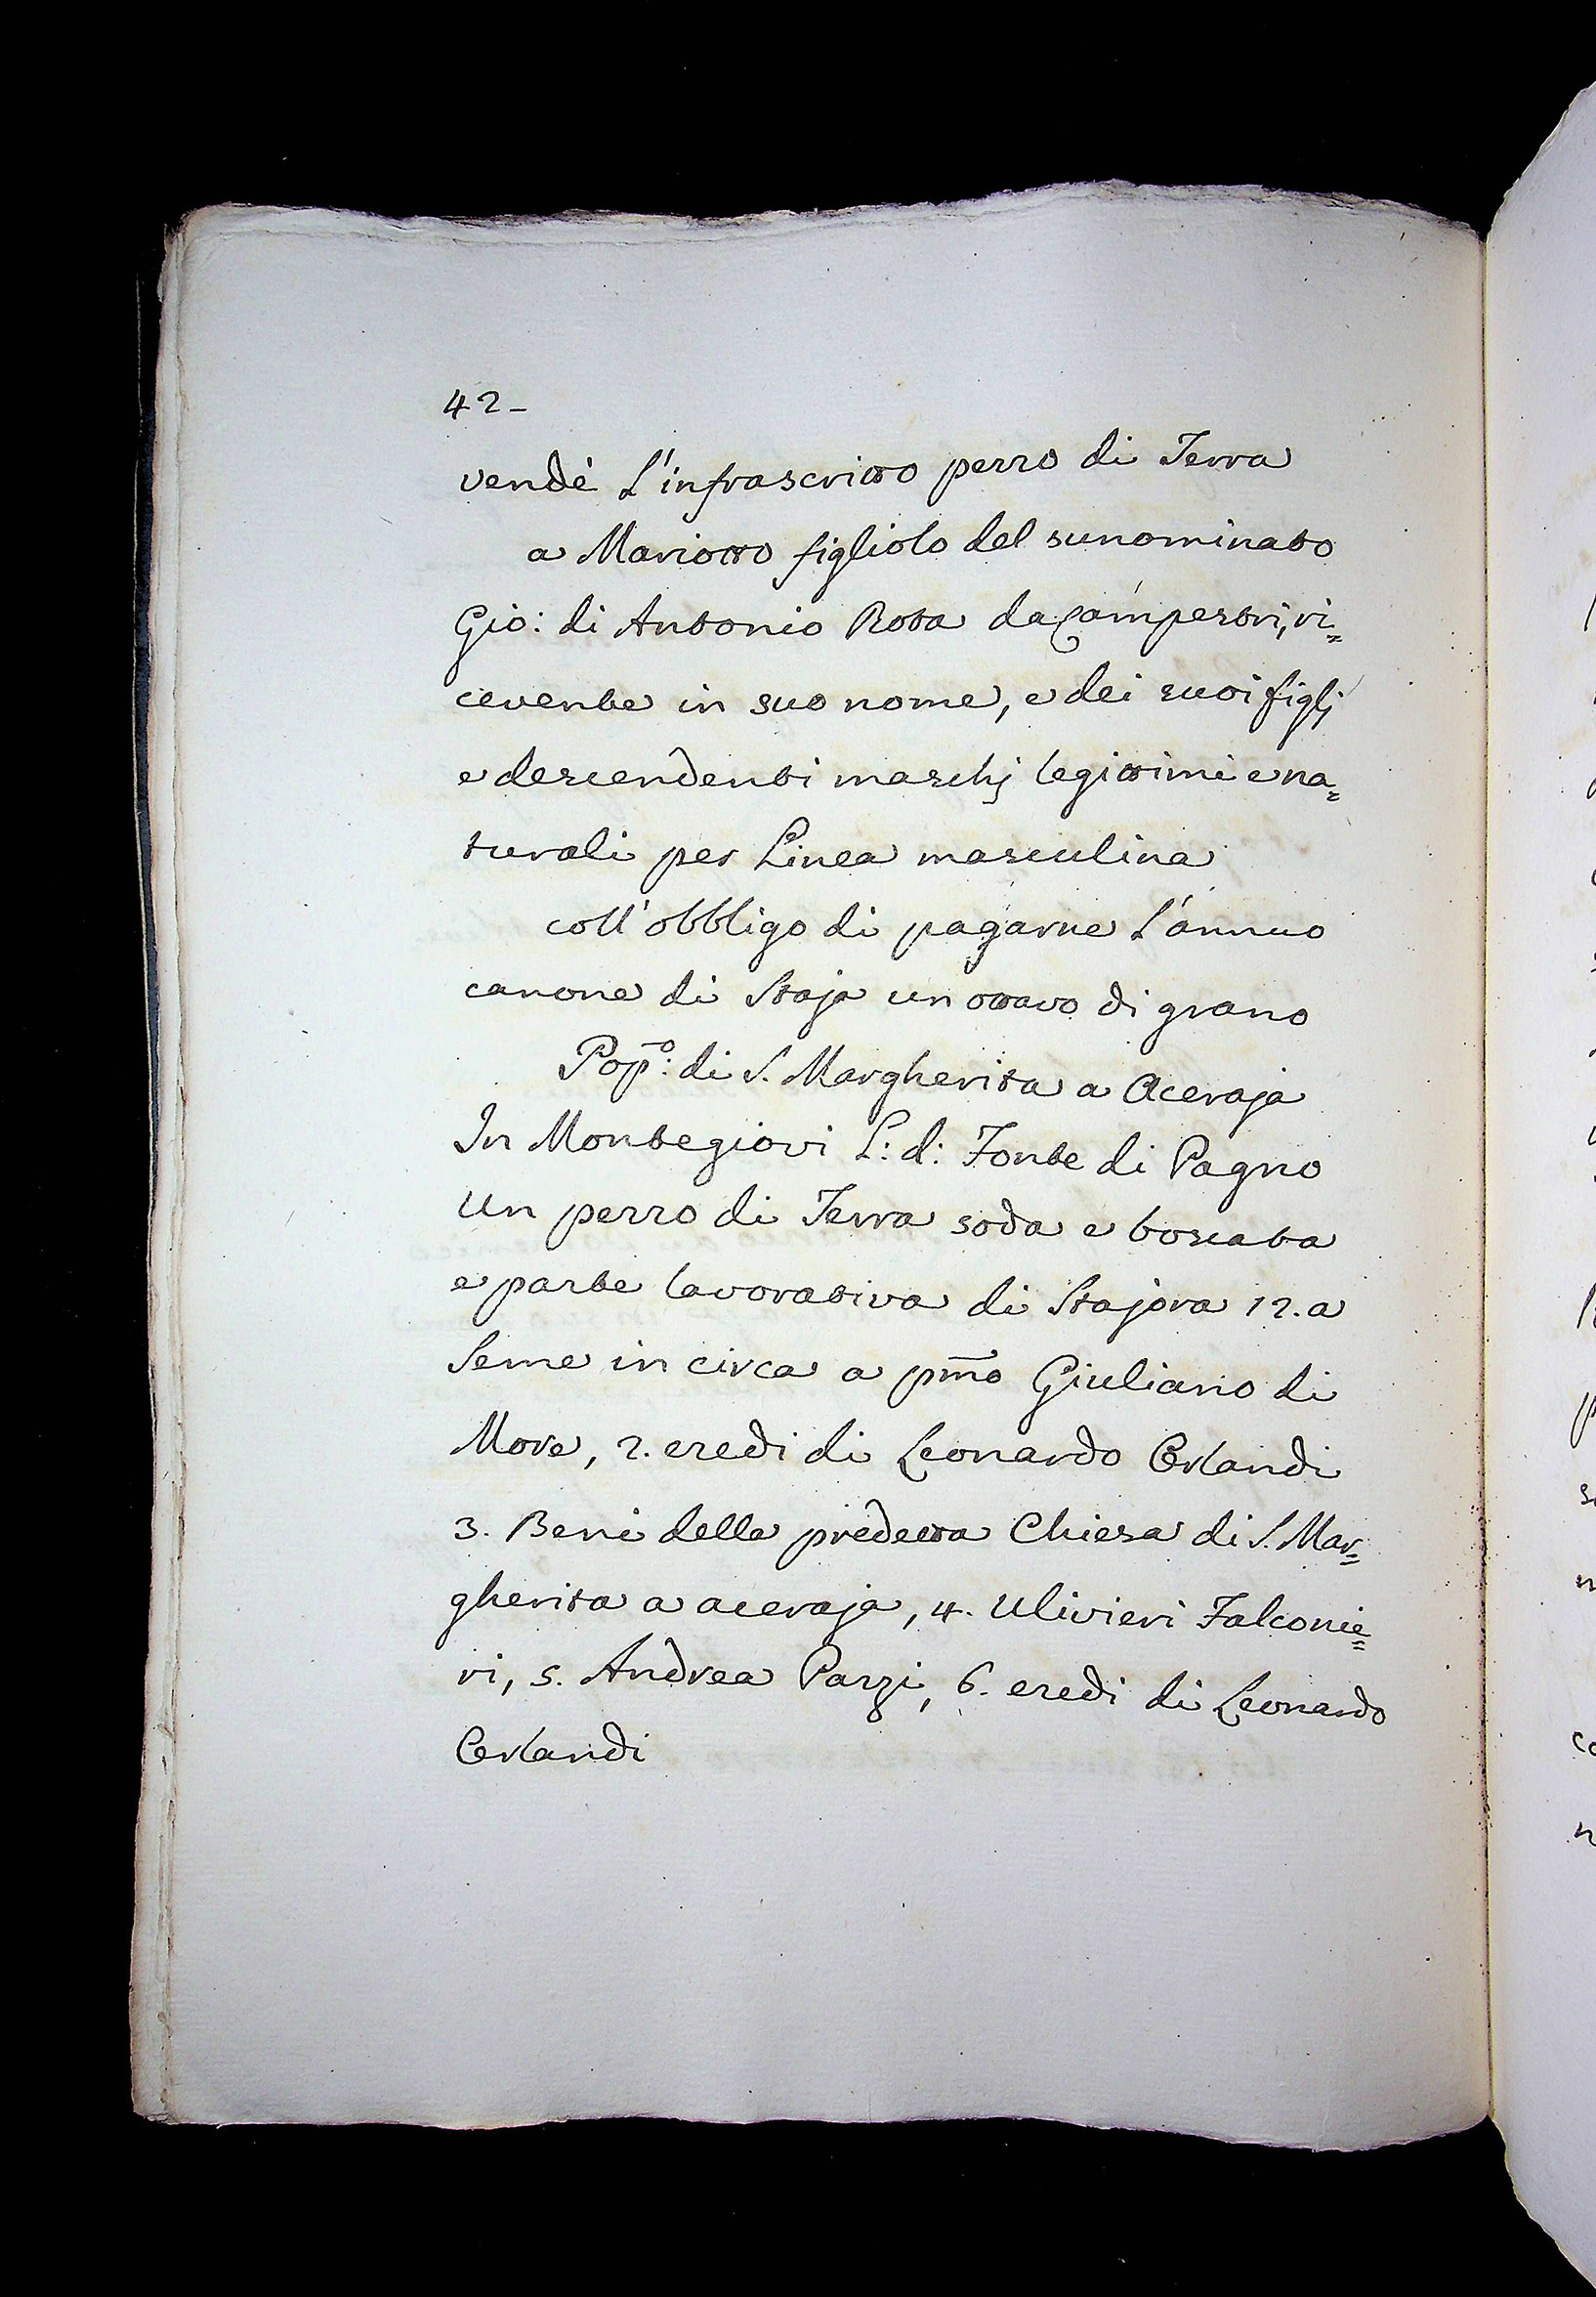 42-
vendè L'infrascritto pezzo di Terra
a Mariotto figliolo del sunominato
Gio: di Antonio Rota da Campestri, ri=
cevente in suo nome, e dei suoi figlj
e descendenti maschj legittimi e na=
turali per Linea masculina
coll'obbligo di pagarne l'annuo
canone di Staja un ottavo di grano
Popo: di S. Margherita a Aceraja
In Montegiovi L: d: Fonte di Pagno
Un pezzo di Terra soda e boscata
e parte lavorativa di Stajora 12. a
Seme in circa a pmo Giuliano di
More, 2. eredi di Leonardo Orlandi
3. Beni della predetta Chiesa di S. Mar=
gherita a aceraja, 4. Ulivieri Falconie=
ri, 5. Andrea Pazzi, 6. eredi di Leonardo
Orlandi